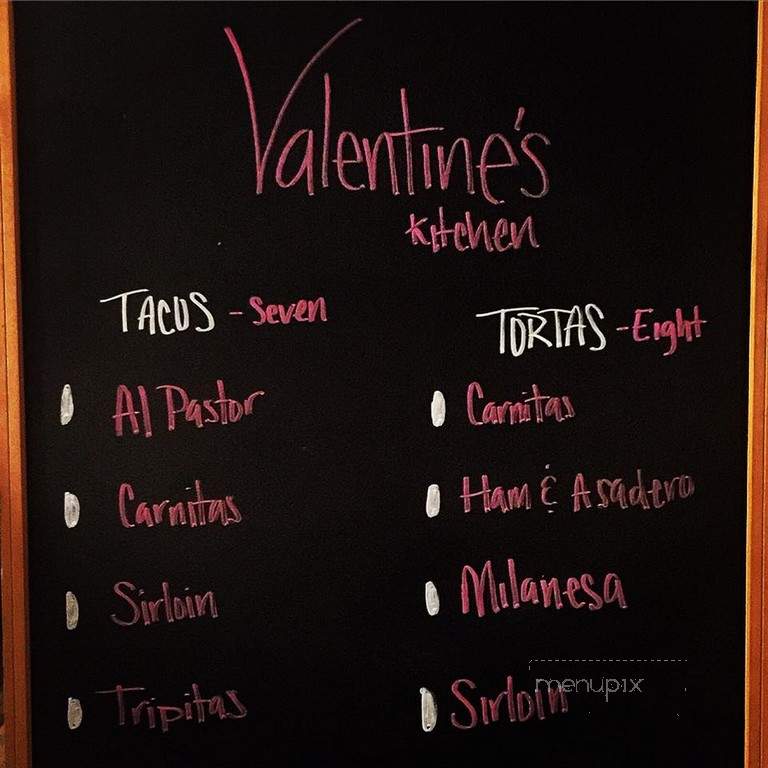 Valentine's
Kitchen
TACUS - Seven
Al Pastor
Carnitas
Sirloin
Tripitas
TORTAS - Eight
Carnitas
Ham & Asadero
Milanesa
Sirloin
menupix